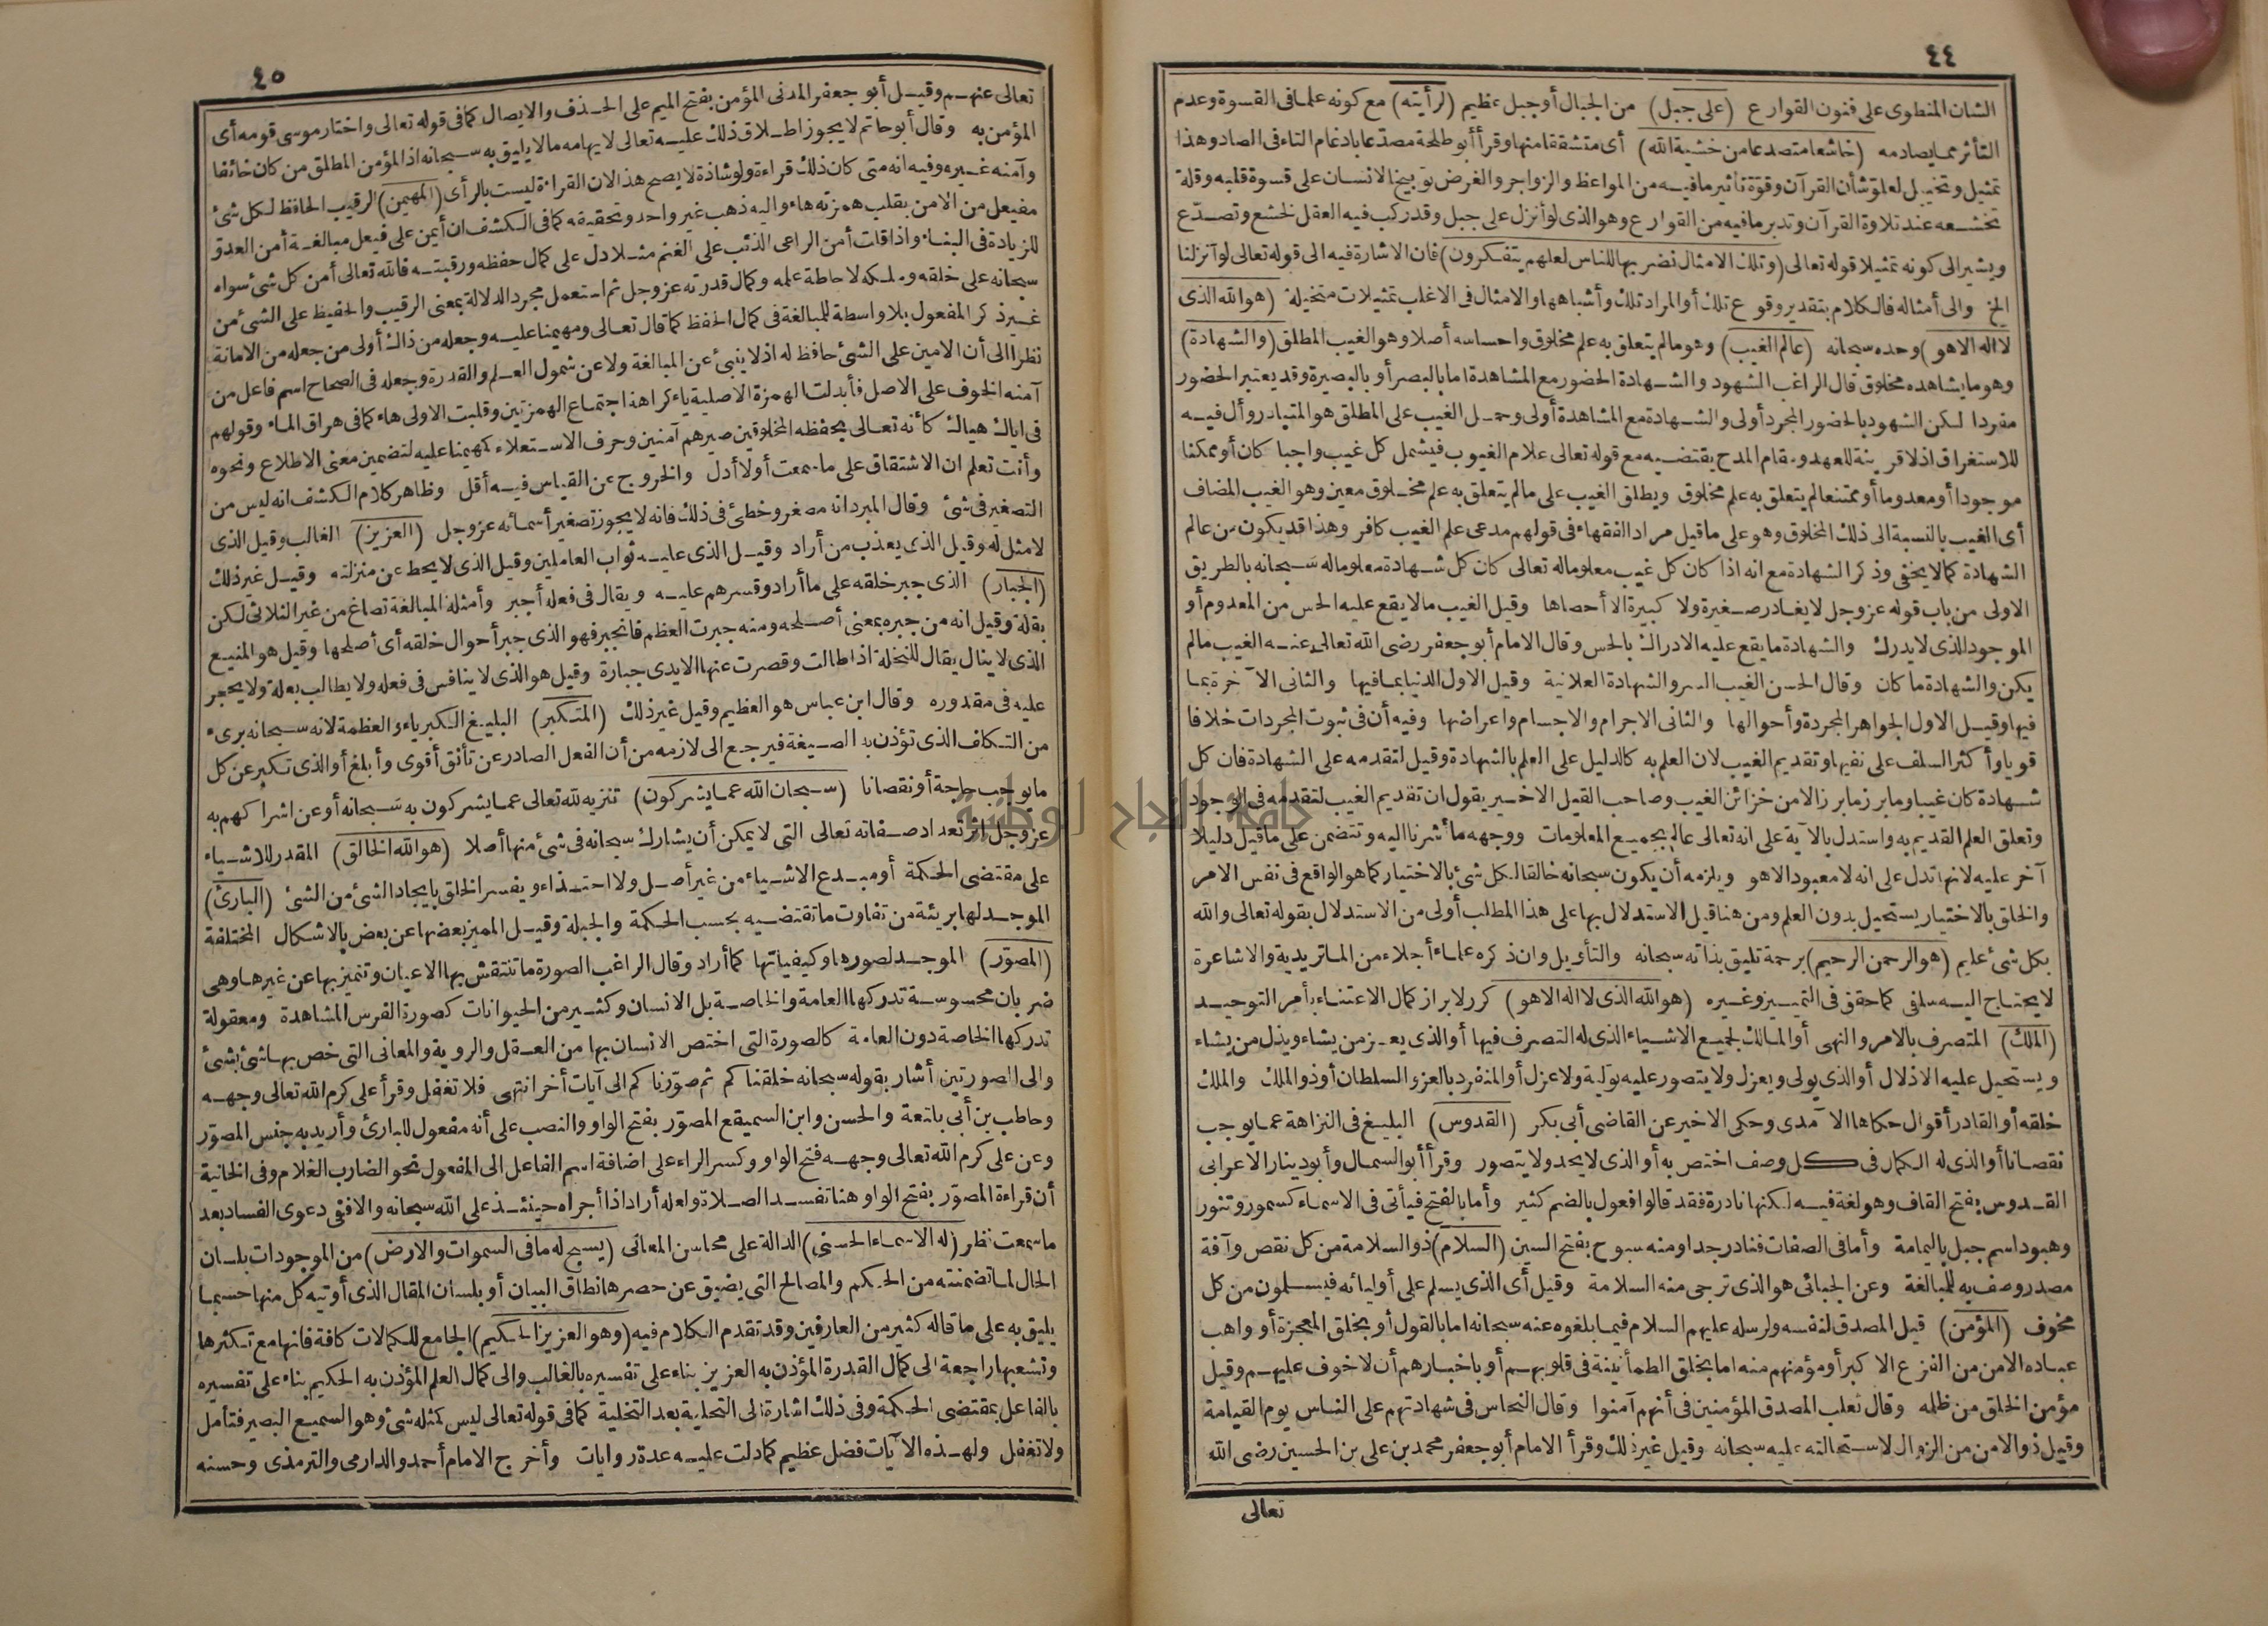 ٤٤
الشان المنطوى على فنون القوارع (على جبل) من الجبال أو جبل عظيم (لرأيته) مع كونه علما فى القسوة وعدم
التأثر مما يصادمه (خاشعا متصدعا من خشية الله) أى متشققا منها وقرأ أبو طلحة مصدّعا بادغام التاء فى الصاد وهذا
تمثيل وتخييل لعلوّ شأن القرآن وقوّة تأثير ما فيه من المواعظ والزواجر والغرض توبيخ الانسان على قسوة قلبه وقلة
تخشعه عند تلاوة القرآن وتدبر ما فيه من القوارع وهو الذى لو أنزل على جبل وقد ركب فيه العقل لخشع وتصدّع
ويشير الى كونه تمثيلا قوله تعالى (وتلك الامثال نضربها للناس لعلهم يتفكرون) فان الاشارة فيه الى قوله تعالى لو أنزلنا
الخ والى أمثاله فالكلام بتقدير وقوع تلك أو المراد تلك وأشباهها والامثال فى الاغلب تمثيلات متخيلة (هو الله الذى
لا اله الا هو) وحده سبحانه (عالم الغيب) وهو ما لم يتعلق به علم مخلوق واحساسه أصلا وهو الغيب المطلق (والشهادة)
وهو ما يشاهده مخلوق قال الراغب الشهود والشهادة الحضور مع المشاهدة اما بالبصر أو بالبصيرة وقد يعتبر الحضور
مفردا لكن الشهود بالحضور المجرد أولى والشهادة مع المشاهدة أولى وحمل الغيب على المطلق هو المتبادر وأل فيه
للاستغراق اذ لا قرينة للعهد ومقام المدح يقتضيه مع قوله تعالى علام الغيوب فيشمل كل غيب واجبا كان أو ممكنا
موجودا أو معدوما أو ممتنعا لم يتعلق به علم مخلوق ويطلق الغيب على ما لم يتعلق به علم مخلوق معين وهو الغيب المضاف
أى الغيب بالنسبة الى ذلك المخلوق وهو على ما قيل مراد الفقهاء فى قولهم مدعى علم الغيب كافر وهذا قد يكون من عالم
الشهادة كما لا يخفى وذكر الشهادة مع انه اذا كان كل غيب معلوما له تعالى كان كل شهادة معلوما له سبحانه بالطريق
الاولى من باب قوله عز وجل لا يغادر صغيرة ولا كبيرة الا أحصاها وقيل الغيب ما لا يقع عليه الحس من المعدوم أو
الموجود الذى لا يدرك والشهادة ما يقع عليه الادراك بالحس وقال الامام أبو جعفر رضى الله تعالى عنه الغيب ما لم
يكن والشهادة ما كان وقال الحسن الغيب السر والشهادة العلانية وقيل الاول الدنيا بما فيها والثانى الآخرة بما
فيها وقيل الاول الجواهر المجردة وأحوالها والثانى الاجرام والاجسام واعراضها وفيه أن فى ثبوت المجردات خلافا
قويا وأكثر السلف على نفيها وتقديم الغيب لان العلم به كالدليل على العلم بالشهادة وقيل لتقدمه على الشهادة فان كل
شهادة كان غيبا وما برز ما برز الا من خزائن الغيب وصاحب القيل الاخير يقول ان تقديم الغيب لتقدمه فى الوجود
وتعلق العلم القديم به واستدل بالآية على انه تعالى عالم بجميع المعلومات ووجهه ما أشرنا اليه وتتضمن على ما قيل دليلا
آخر عليه لانها تدل على انه لا معبود الا هو ويلزمه أن يكون سبحانه خالقا لكل شئ بالاختيار كما هو الواقع فى نفس الامر
والخلق بالاختيار يستحيل بدون العلم ومن هنا قيل الاستدلال بها على هذا المطلب أولى من الاستدلال بقوله تعالى والله
بكل شئ عليم (هو الرحمن الرحيم) برحمة تليق بذاته سبحانه والتأويل وان ذكره علماء أجلاء من الماتريدية والاشاعرة
لا يحتاج اليه سلفى كما حقق فى التمييز وغيره (هو الله الذى لا اله الا هو) كرر لابراز كمال الاعتناء بأمر التوحيد
(الملك) المتصرف بالامر والنهى أو المالك لجميع الاشياء الذى له التصرف فيها أو الذى يعز من يشاء ويذل من يشاء
ويستحيل عليه الاذلال أو الذى يولى ويعزل ولا يتصور عليه تولية ولا عزل أو المنفرد بالعز والسلطان أو ذو الملك والملك
خلقه أو القادر أقوال حكاها الآمدى وحكى الاخير عن القاضى أبى بكر (القدوس) البليغ فى النزاهة عما يوجب
نقصانا أو الذى له الكمال فى كل وصف اختص به أو الذى لا يحد ولا يتصور وقرأ أبو السمال وأبو دينار الاعرابى
القدوس بفتح القاف وهو لغة فيه لكنها نادرة فقد قالوا فعول بالضم كثير وأما بالفتح فيأتى فى الاسماء كسمور وتنور
وهبود اسم جبل باليمامة وأما فى الصفات فنادر جدا ومنه سبوح بفتح السين (السلام) ذو السلامة من كل نقص وآفة
مصدر وصف به للمبالغة وعن الجبائى هو الذى ترجى منه السلامة وقيل أى الذى يسلم على أوليائه فيسلمون من كل
مخوف (المؤمن) قيل المصدق لنفسه ولرسله عليهم السلام فيما بلغوه عنه سبحانه اما بالقول أو بخلق المعجزة أو واهب
عباده الامن من الفزع الاكبر أو مؤمنهم منه اما بخلق الطمأنينة فى قلوبهم أو باخبارهم أن لا خوف عليهم وقيل
مؤمن الخلق من ظلمه وقال ثعلب المصدق المؤمنين فى أنهم آمنوا وقال النحاس فى شهادتهم على الناس يوم القيامة
وقيل ذو الامن من الزوال لاستحالته عليه سبحانه وقيل غير ذلك وقرأ الامام أبو جعفر محمد بن على بن الحسين رضى الله
تعالى
٤٥
تعالى عنهم وقيل أبو جعفر المدنى المؤمن بفتح الميم على الحذف والايصال كما فى قوله تعالى واختار موسى قومه أى
المؤمن به وقال أبو حاتم لا يجوز اطلاق ذلك عليه تعالى لايهامه ما لا يليق به سبحانه اذ المؤمن المطلق من كان خائفا
وآمنه غيره وفيه انه متى كان ذلك قراءة ولو شاذة لا يصح هذا لان القراءة ليست بالرأى (المهيمن) الرقيب الحافظ لكل شئ
مفيعل من الامن بقلب همزته هاء واليه ذهب غير واحد وتحقيقه كما فى الكشف ان أيمن على فيعل مبالغة أمن العدوّ
للزيادة فى البناء واذا قلت أمن الراعى الذئب على الغنم مثلا دل على كمال حفظه ورقبته فالله تعالى أمن كل شئ سواه
سبحانه على خلقه وملكه لاحاطة علمه وكمال قدرته عز وجل ثم استعمل مجرد الدلالة بمعنى الرقيب والحفيظ على الشئ من
غير ذكر المفعول بلا واسطة للمبالغة فى كمال الحفظ كما قال تعالى ومهيمنا عليه وجعله من ذاك أولى من جعله من الامانة
نظرا الى أن الامين على الشئ حافظ له اذ لا ينبئ عن المبالغة ولا عن شمول العلم والقدرة وجعله فى الصحاح اسم فاعل من
آمنه الخوف على الاصل فأبدلت الهمزة الاصلية ياء كراهة اجتماع الهمزتين وقلبت الاولى هاء كما فى هراق الماء وقولهم
فى اياك هياك كأنه تعالى بحفظه المخلوقين صيرهم آمنين وحرف الاستعلاء كمهيمنا عليه لتضمين معنى الاطلاع ونحوه
وأنت تعلم ان الاشتقاق على ما سمعت أولا أدل والخروج عن القياس فيه أقل وظاهر كلام الكشف انه ليس من
التصغير فى شئ وقال المبرد انه مصغر وخطئ فى ذلك فانه لا يجوز تصغير أسمائه عز وجل (العزيز) الغالب وقيل الذى
لا مثل له وقيل الذى يعذب من أراد وقيل الذى عليه ثواب العاملين وقيل الذى لا يحط عن منزلته وقيل غير ذلك
(الجبار) الذى جبر خلقه على ما أراد وقسرهم عليه ويقال فى فعله أجبر وأمثلة المبالغة تصاغ من غير الثلاثى لكن
بقلة وقيل انه من جبره بمعنى أصلحه ومنه جبرت العظم فانجبر فهو الذى جبر أحوال خلقه أى أصلحها وقيل هو المنيع
الذى لا ينال يقال للنخلة اذا طالت وقصرت عنها الايدى جبارة وقيل هو الذى لا ينافس فى فعله ولا يطالب بعلة ولا يحجر
عليه فى مقدوره وقال ابن عباس هو العظيم وقيل غير ذلك (المتكبر) البليغ الكبرياء والعظمة لانه سبحانه برىء
من التكلف الذى تؤذن به الصيغة فيرجع الى لازمه من أن الفعل الصادر عن تأنق أقوى وأبلغ أو الذى تكبر عن كل
ما يوجب حاجة أو نقصانا (سبحان الله عما يشركون) تنزيه لله تعالى عما يشركون به سبحانه أو عن اشراكهم به
عز وجل اثر تعداد صفاته تعالى التى لا يمكن أن يشارك سبحانه فى شئ منها أصلا (هو الله الخالق) المقدر للاشياء
على مقتضى الحكمة أو مبدع الاشياء من غير أصل ولا احتذاء ويفسر الخلق بايجاد الشئ من الشئ (البارئ)
الموجد لها بريئة من تفاوت ما تقتضيه بحسب الحكمة والجبلة وقيل المميز بعضها عن بعض بالاشكال المختلفة
(المصوّر) الموجد لصورها وكيفياتها كما أراد وقال الراغب الصورة ما تنتقش بها الاعيان وتتميز بها عن غيرها وهى
ضربان محسوسة تدركها العامة والخاصة بل الانسان وكثير من الحيوانات كصورة الفرس المشاهدة ومعقولة
تدركها الخاصة دون العامة كالصورة التى اختص الانسان بها من العقل والروية والمعانى التى خص بها شئ بشئ
والى الصورتين أشار بقوله سبحانه خلقناكم ثم صوّرناكم الى آيات أخر انتهى فلا تغفل وقرأ على كرم الله تعالى وجهه
وحاطب بن أبى بلتعة والحسن وابن السميقع المصوّر بفتح الواو والنصب على أنه مفعول للبارئ وأريد به جنس المصوّر
وعن على كرم الله تعالى وجهه فتح الواو وكسر الراء على اضافة اسم الفاعل الى المفعول نحو الضارب الغلام وفى الخانية
أن قراءة المصوّر بفتح الواو هنا تفسد الصلاة ولعله أراد اذا أجراه حينئذ على الله سبحانه والا ففى دعوى الفساد بعد
ما سمعت نظر (له الاسماء الحسنى) الدالة على محاسن المعانى (يسبح له ما فى السموات والارض) من الموجودات بلسان
الحال لما تضمنته من الحكم والمصالح التى يضيق عن حصرها نطاق البيان أو بلسان المقال الذى أوتيه كل منها حسبما
يليق به على ما قاله كثير من العارفين وقد تقدم الكلام فيه (وهو العزيز الحكيم) الجامع للكمالات كافة فانها مع تكثرها
وتشعبها راجعة الى كمال القدرة المؤذن به العزيز بناء على تفسيره بالغالب والى كمال العلم المؤذن به الحكيم بناء على تفسيره
بالفاعل بمقتضى الحكمة وفى ذلك اشارة الى التحلية بعد التخلية كما فى قوله تعالى ليس كمثله شئ وهو السميع البصير فتأمل
ولا تغفل ولهذه الآيات فضل عظيم كما دلت عليه عدة روايات وأخرج الامام أحمد والدارمى والترمذى وحسنه
جامعة النجاح الوطنية